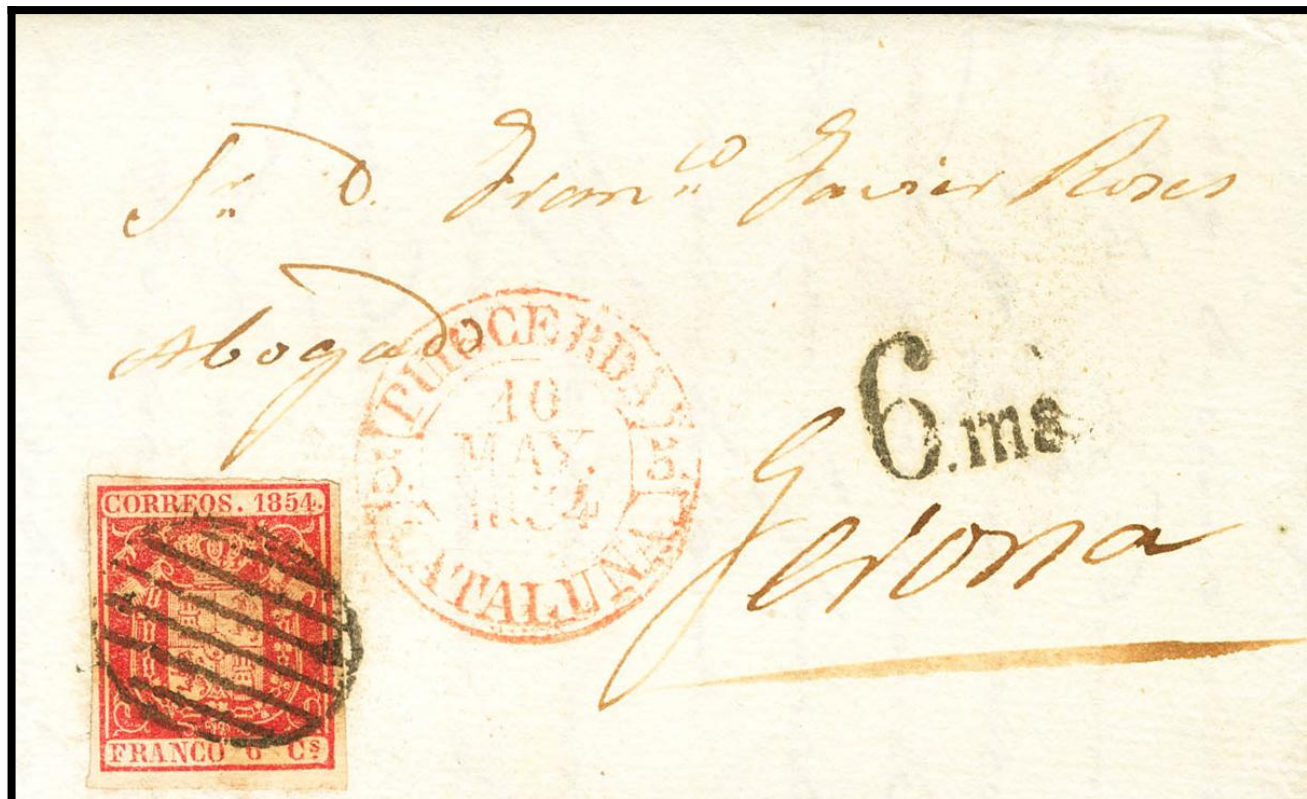 Sr. D. Fran.co Javier Roses
Abogado
PUIGCERDA
10
MAY.
1854
CATALUÑA
6.ms
Gerona
CORREOS. 1854.
FRANCO 6 Cs.